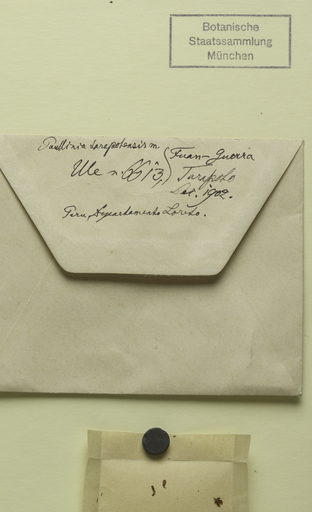 Botanische
Staatssammlung
München
Paullinia tarapotensis m.
(Juan-Guerra
Ule n. 6613,) Tarapoto
1902.
Peru, Departamento Loreto.